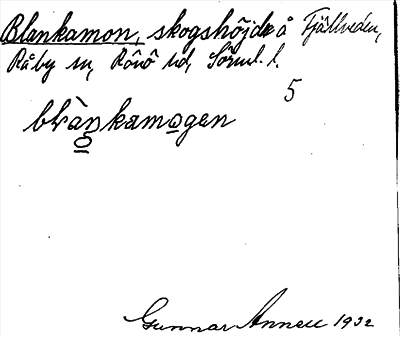 Blankamon, skogshöjd å Fjällveden,
Råby sn, Rönö hd, Sörml. l.
5
blràŋkamogen
Gunnar Annell 1932